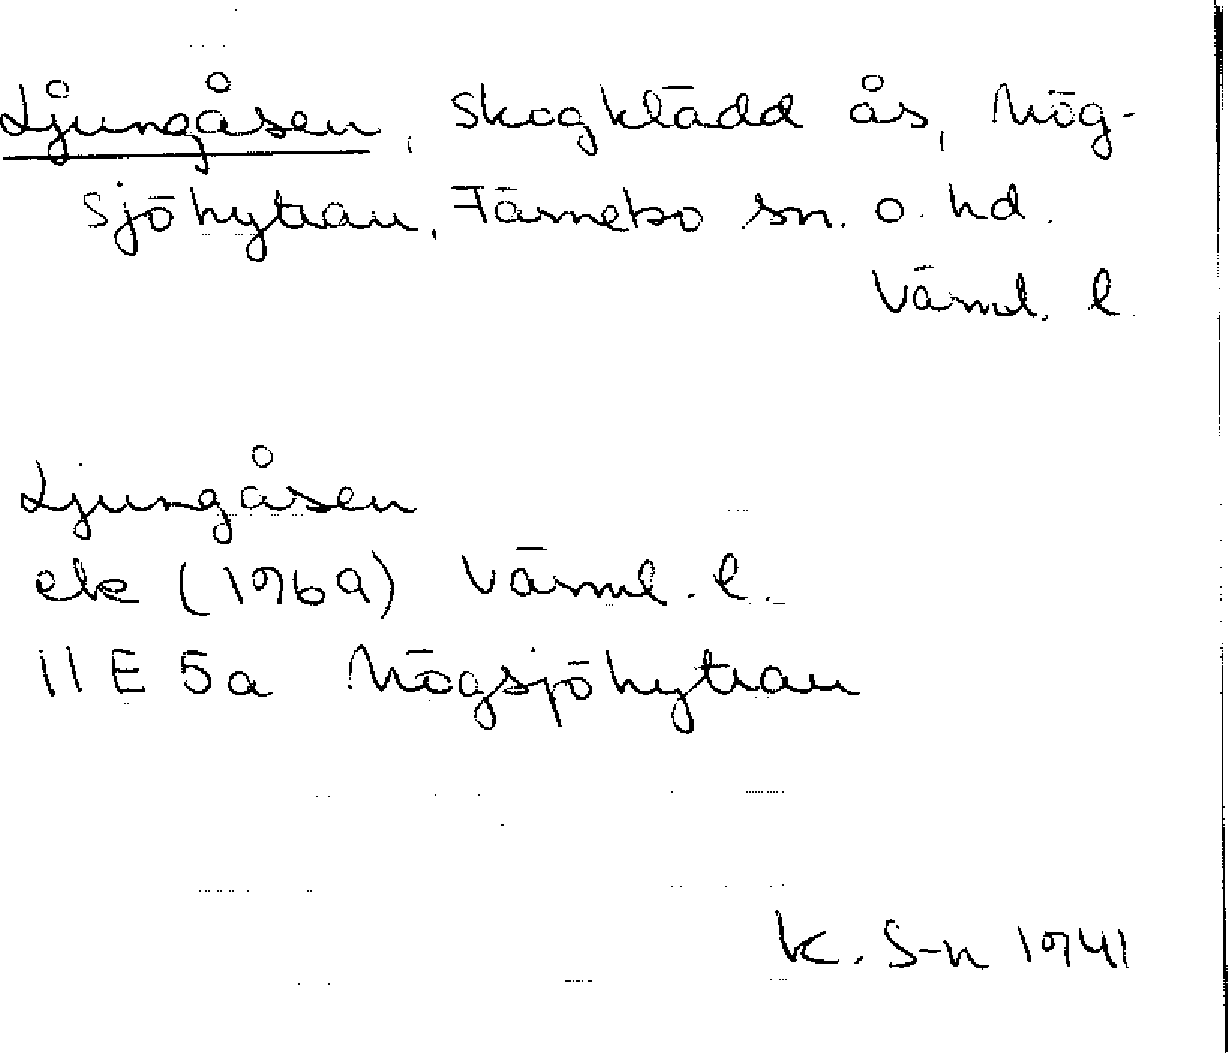 Ljungåsen, skogklädd ås, Nög-
sjöhyttan, Färnebo sn. o. hd.
Värml. l.
Ljungåsen
ek (1969) Värml. l.
11 E 5a Högsjöhyttan
K. S-n 1941